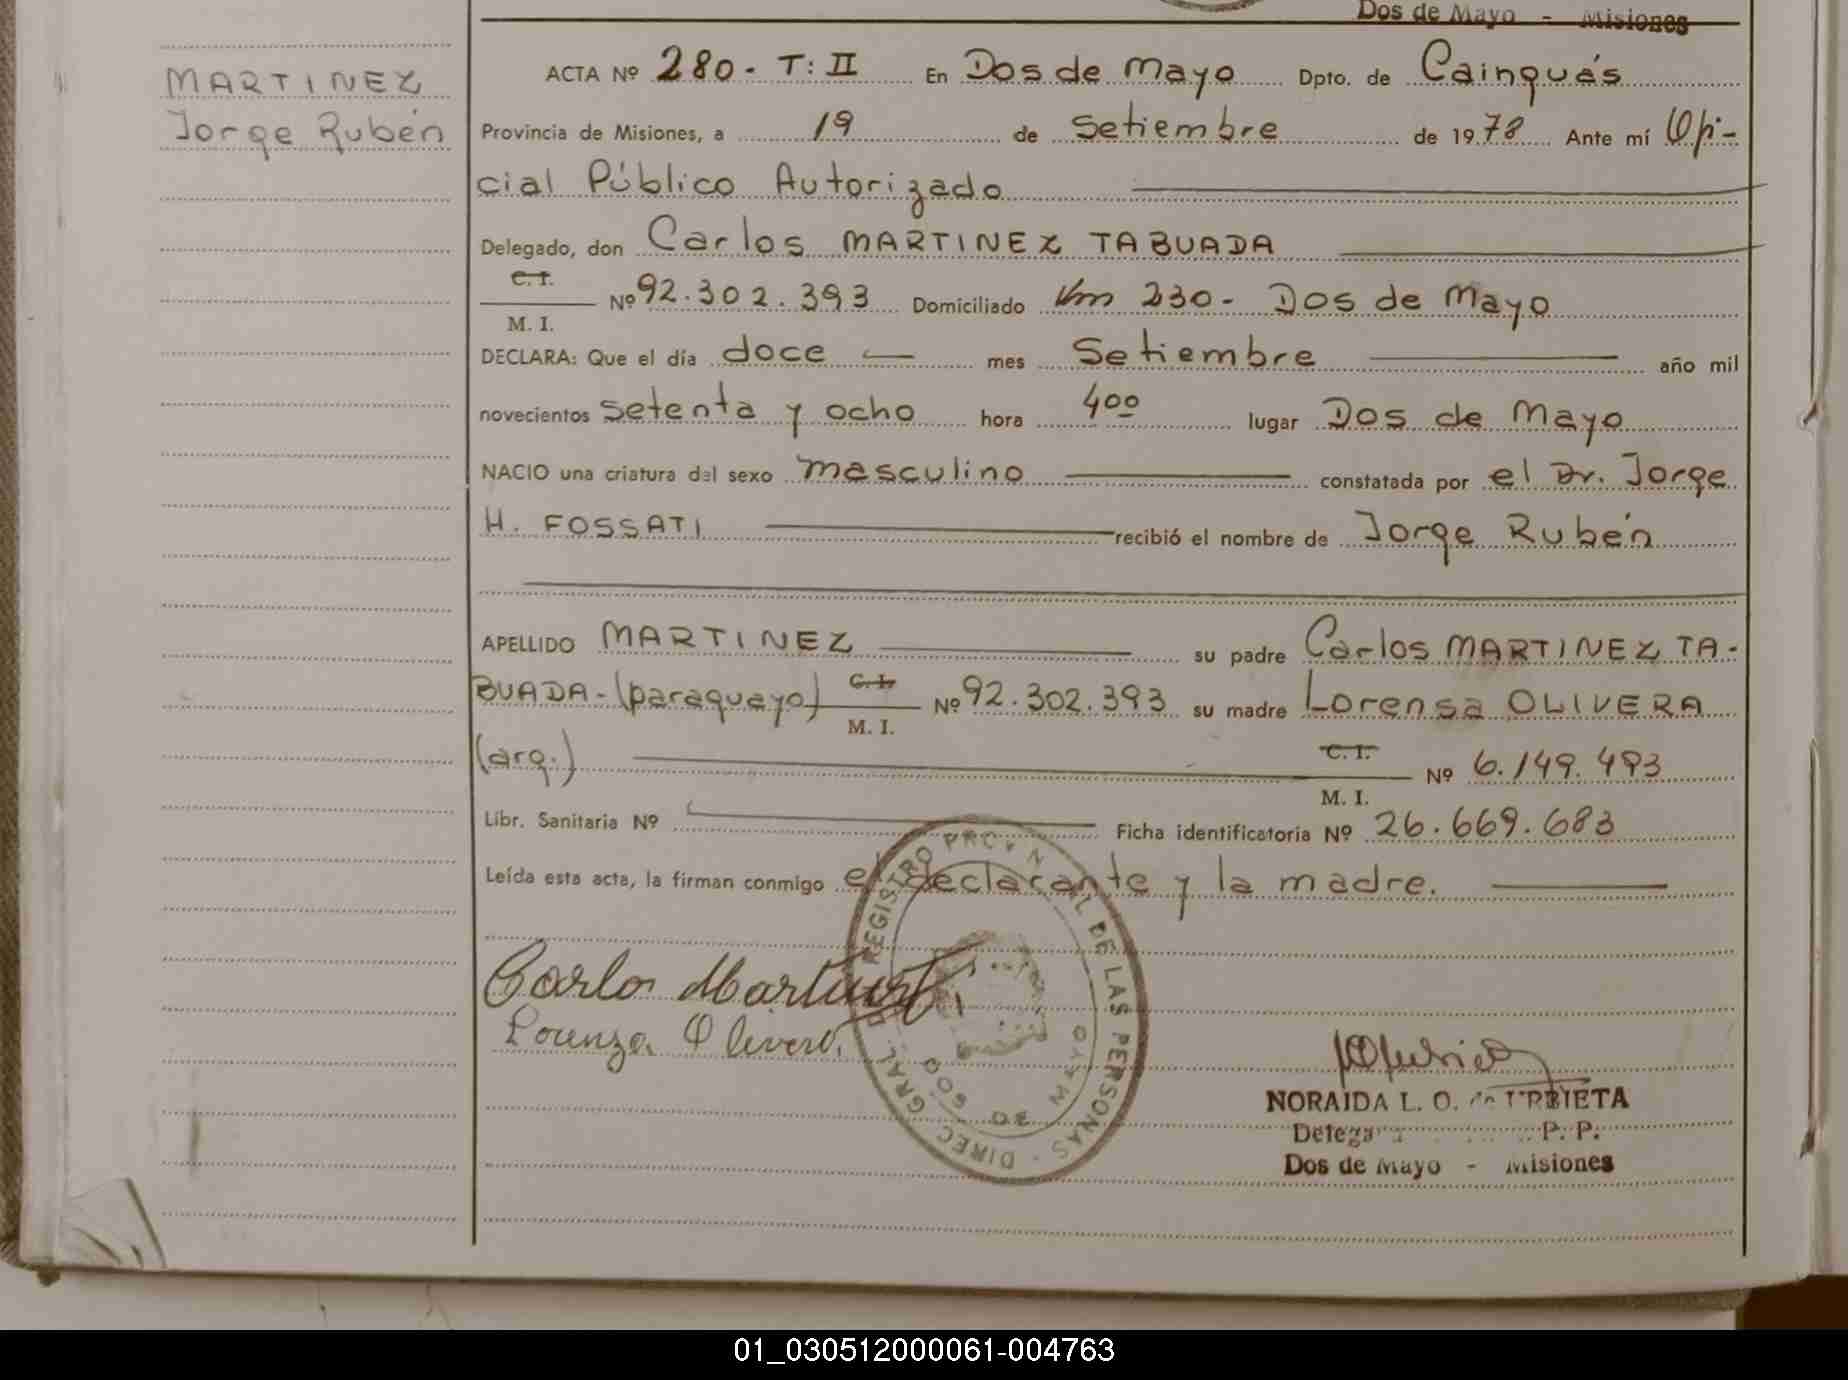 Dos de Mayo - Misiones
MARTINEZ
Jorge Rubén
ACTA Nº 280 - T: II En Dos de Mayo Dpto. de Cainguás
Provincia de Misiones, a 19 de Setiembre de 1978 Ante mí Ofi-
cial Público Autorizado
Delegado, don Carlos MARTINEZ TABUADA
C. I.
Nº 92.302.393 Domiciliado Km 230 - Dos de Mayo
M. I.
DECLARA: Que el día doce mes Setiembre año mil
novecientos setenta y ocho hora 4oo lugar Dos de Mayo
NACIO una criatura del sexo masculino constatada por el Dr. Jorge
H. FOSSATI recibió el nombre de Jorge Rubén
APELLIDO MARTINEZ su padre Carlos MARTINEZ TA-
BUADA - (paraguayo) C. I. Nº 92.302.393 su madre Lorensa OLIVERA
M. I.
(arg.) C. I. Nº 6.149.493
M. I.
Libr. Sanitaria Nº Ficha identificatoria Nº 26.669.683
Leída esta acta, la firman conmigo el declarante y la madre.
Carlos Martinez
Lorenza Olivera
DIREC. GRAL. REGISTRO PROVINCIAL DE LAS PERSONAS
DOS DE MAYO
NORAIDA L. O. de URBIETA
P. P.
Dos de Mayo - Misiones
01_030512000061-004763